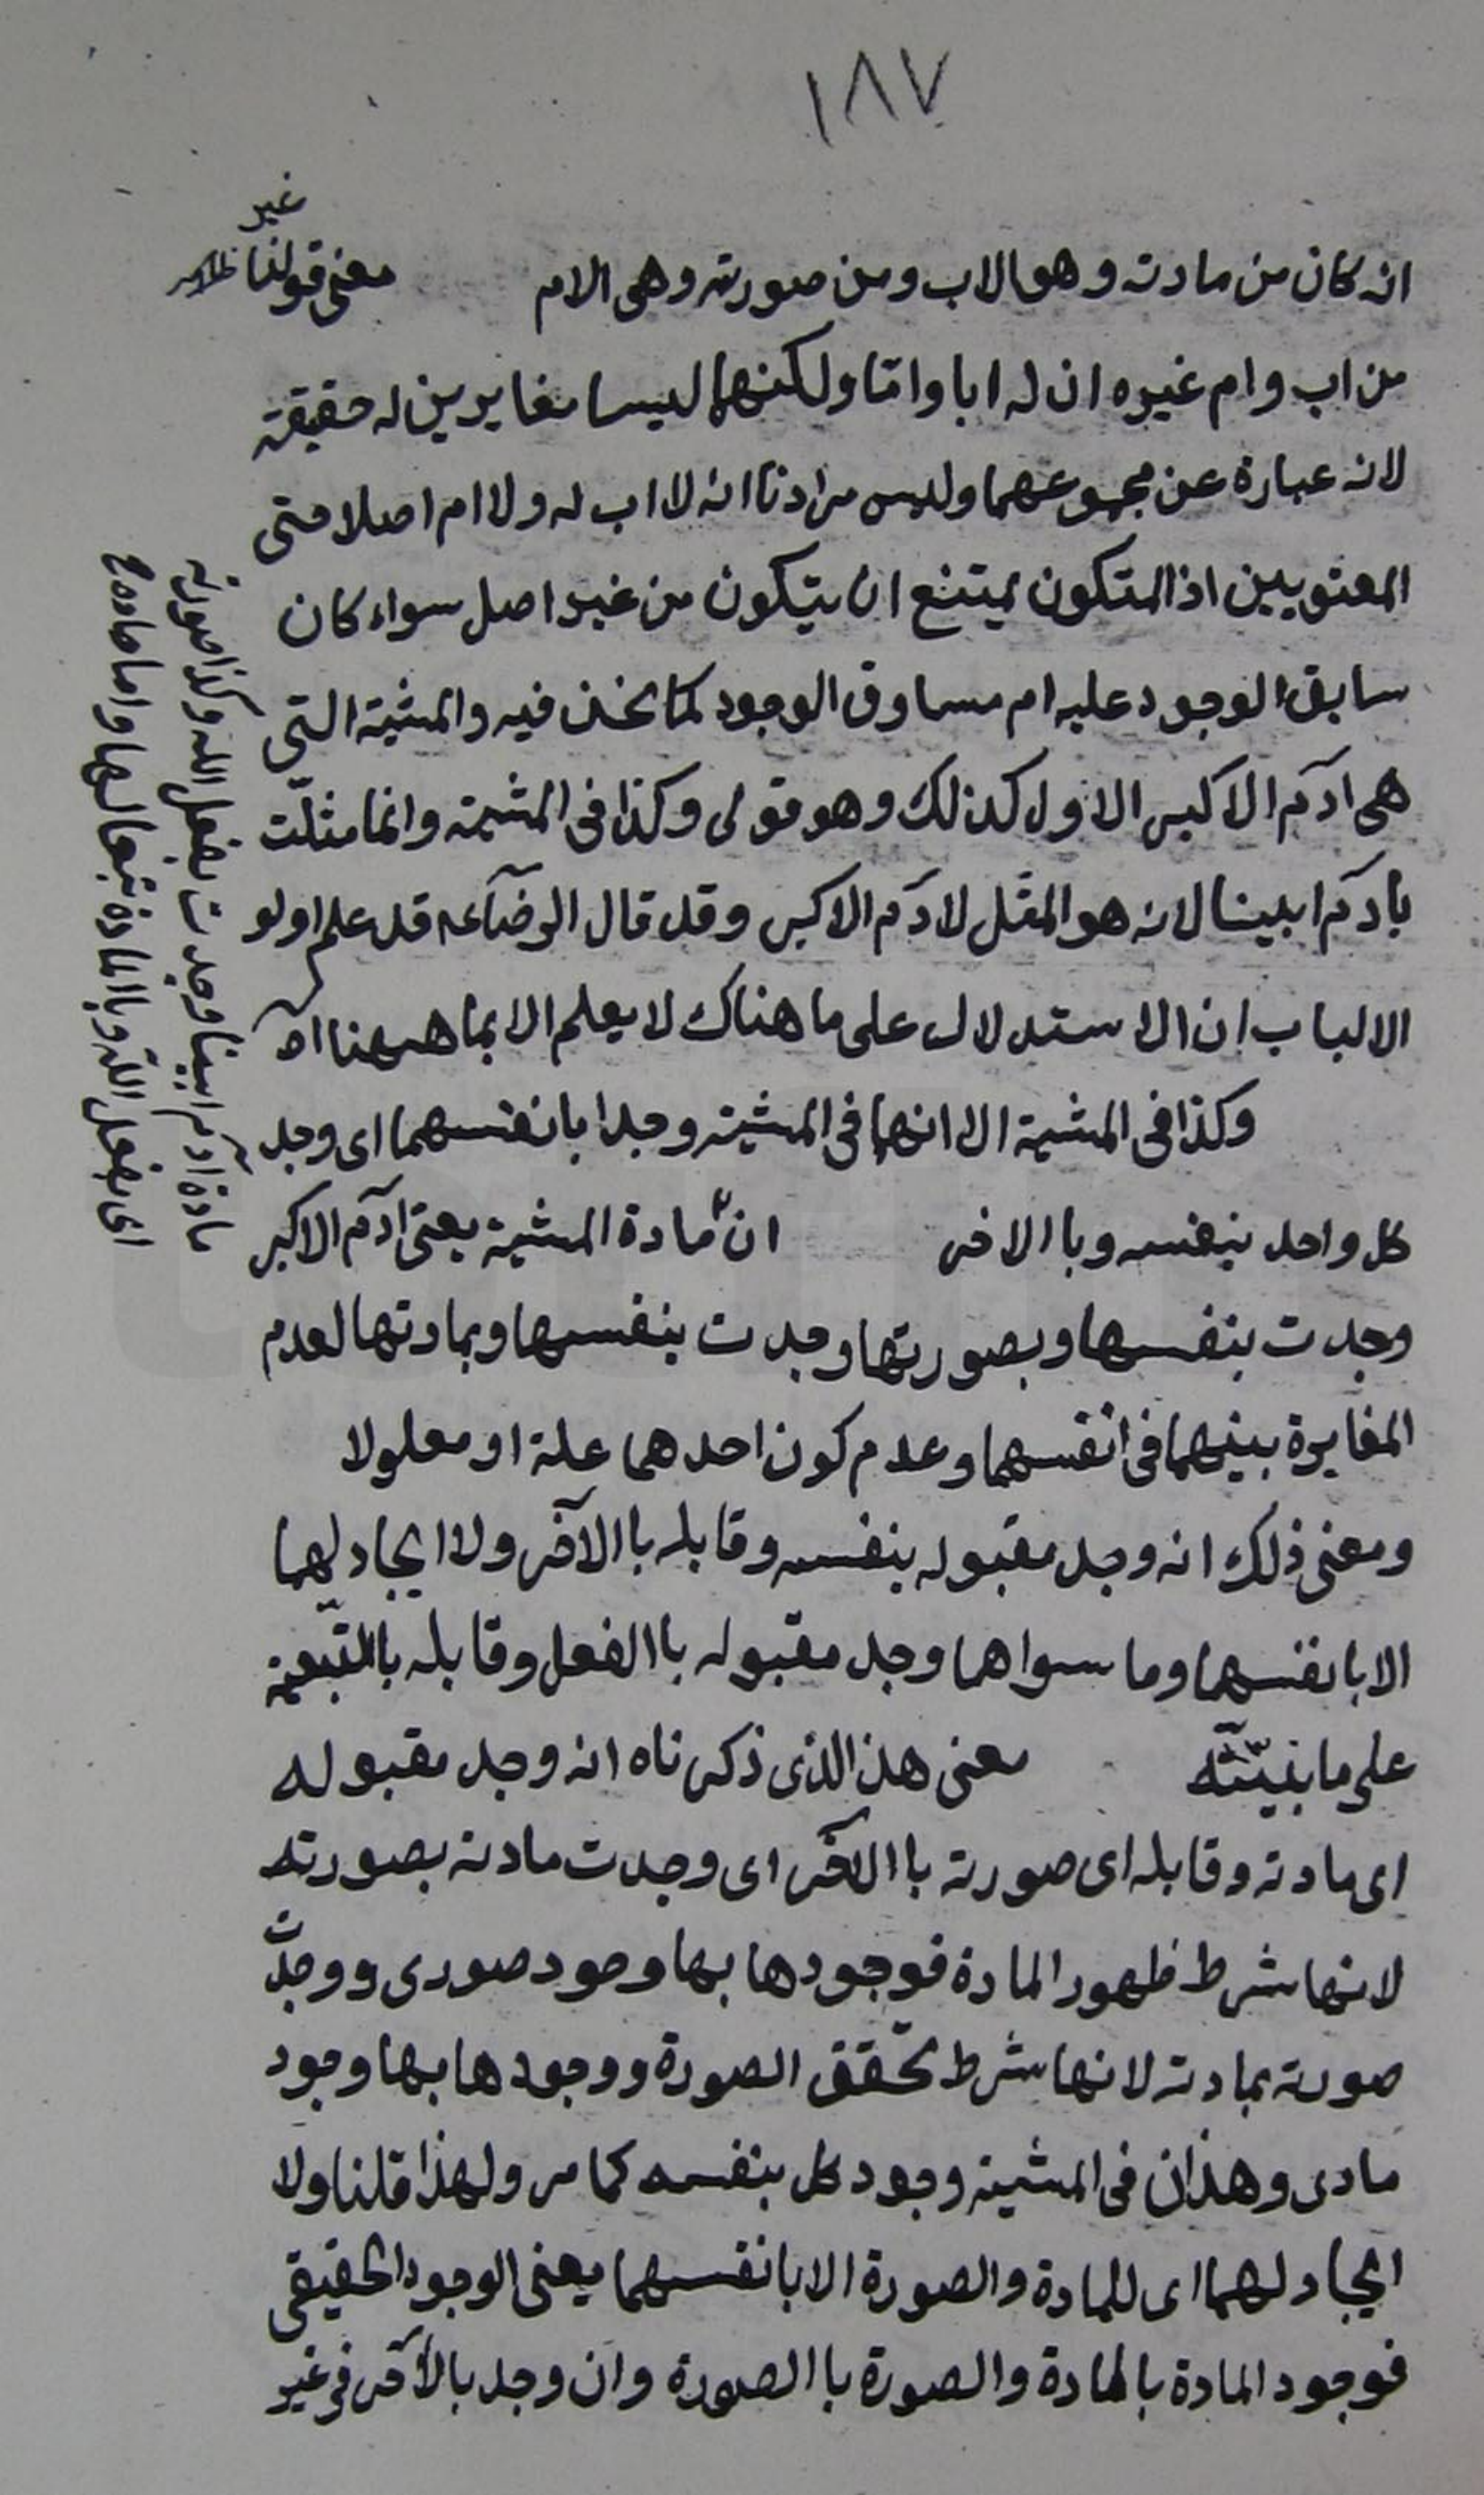 ١٨٧
غير
انه كان من مادته و هو الاب و من صورته و هى الام معنى قولنا ظاهر
من اب و ام غيره ان له ابا و امّا و لكنهما ليسا مغايرين له حقيقة
لانه عبارة عن مجموعهما و ليس مرادنا انه لا اب له و لا ام اصلا حتى
المعنويين اذ المتكون يمتنع ان يتكون من غير اصل سواء كان
سابق الوجود عليه ام مساوق الوجود كما نحن فيه و المشية التى
هى آدم الاكبر الاول كذلك و هو قولى و كذا فى المشية و انما مثلت
بادم ابينا لانه هو المثل لادم الاكبر و قد قال الرضآء قد علم اولو
الالباب ان الاستدلال على ما هناك لا يعلم الا بما ههنا اه
و كذا فى المشية الا انهما فى المشية وجدا بانفسهما اى وجد
كل واحد بنفسه و باالاخر ان مادة المشية يعنى آدم الاكبر
وجدت بنفسها و بصورتها وجدت بنفسها و بمادتها لعدم
المغايرة بينهما فى انفسهما و عدم كون احدهما علة او معلولا
و معنى ذلك انه وجد مقبوله بنفسه و قابله باالآخر و لا ايجاد لهما
الا بانفسهما و ما سواهما وجد مقبوله باالفعل و قابله باالتّبعية
على ما بنيّته معنى هذ الذى ذكرناه انه وجد مقبوله
اى مادته و قابله اى صورته باالآخر اى وجدت مادته بصورته
لانها شرط ظهور المادة فوجودها بها وجود صورى و وجدت
صورته بمادته لانها شرط تحقق الصورة و وجودها بها وجود
مادى و هذان فى المشية وجود كل بنفسه كما مر و لهذا قلنا و لا
ايجاد لهما اى للمادة و الصورة الا بانفسهما يعنى الوجود الحقيقى
فوجود المادة بالمادة و الصورة باالصورة و ان وجد بالآخر فى غير
مادة آدم ابينا وجدت بفعل الله و كذا صورته
اى بفعل الله و باالمادة تبعا لها و اما مادة